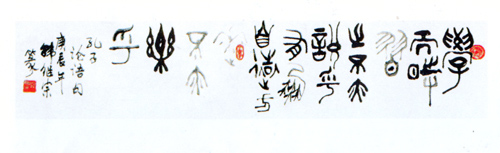 學
而時
習
之不亦
說乎
有朋
自遠方
來
不亦
樂
乎
孔子
論語句
庚辰年
篆